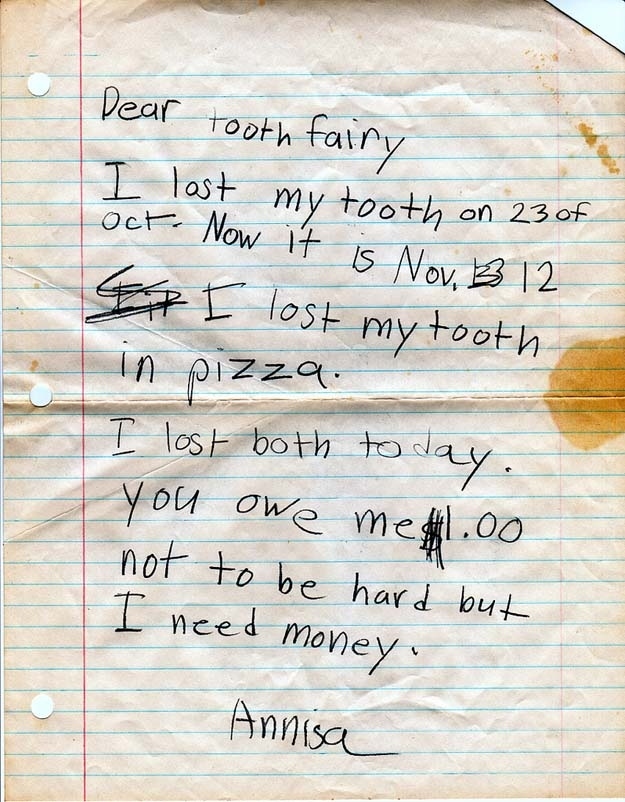 Dear tooth fairy
I lost my tooth on 23 of
oct. Now it is Nov. 12
I lost my tooth
in pizza.
I lost both today.
you owe me $1.00
not to be hard but
I need money.
Annisa